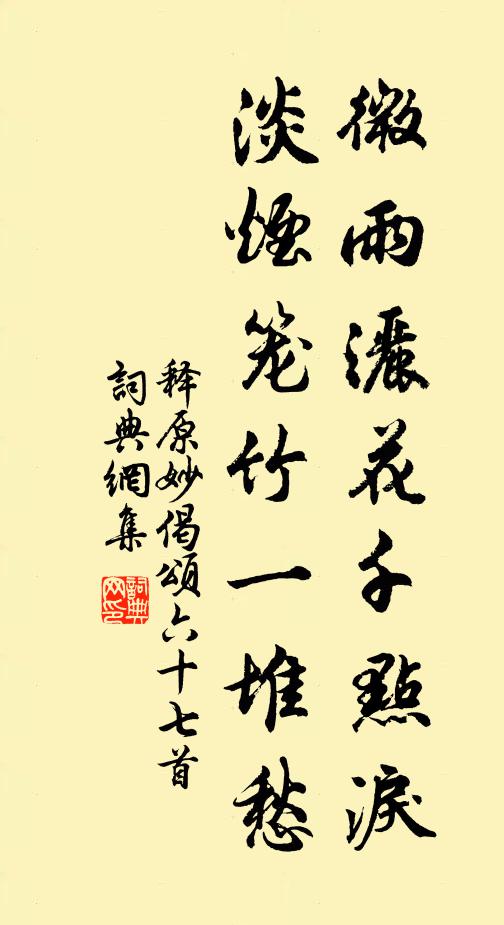 微雨灑花千點淚
淡煙笼竹一堆愁
释原妙偈頌六十七首
詞典網集
詞典網印